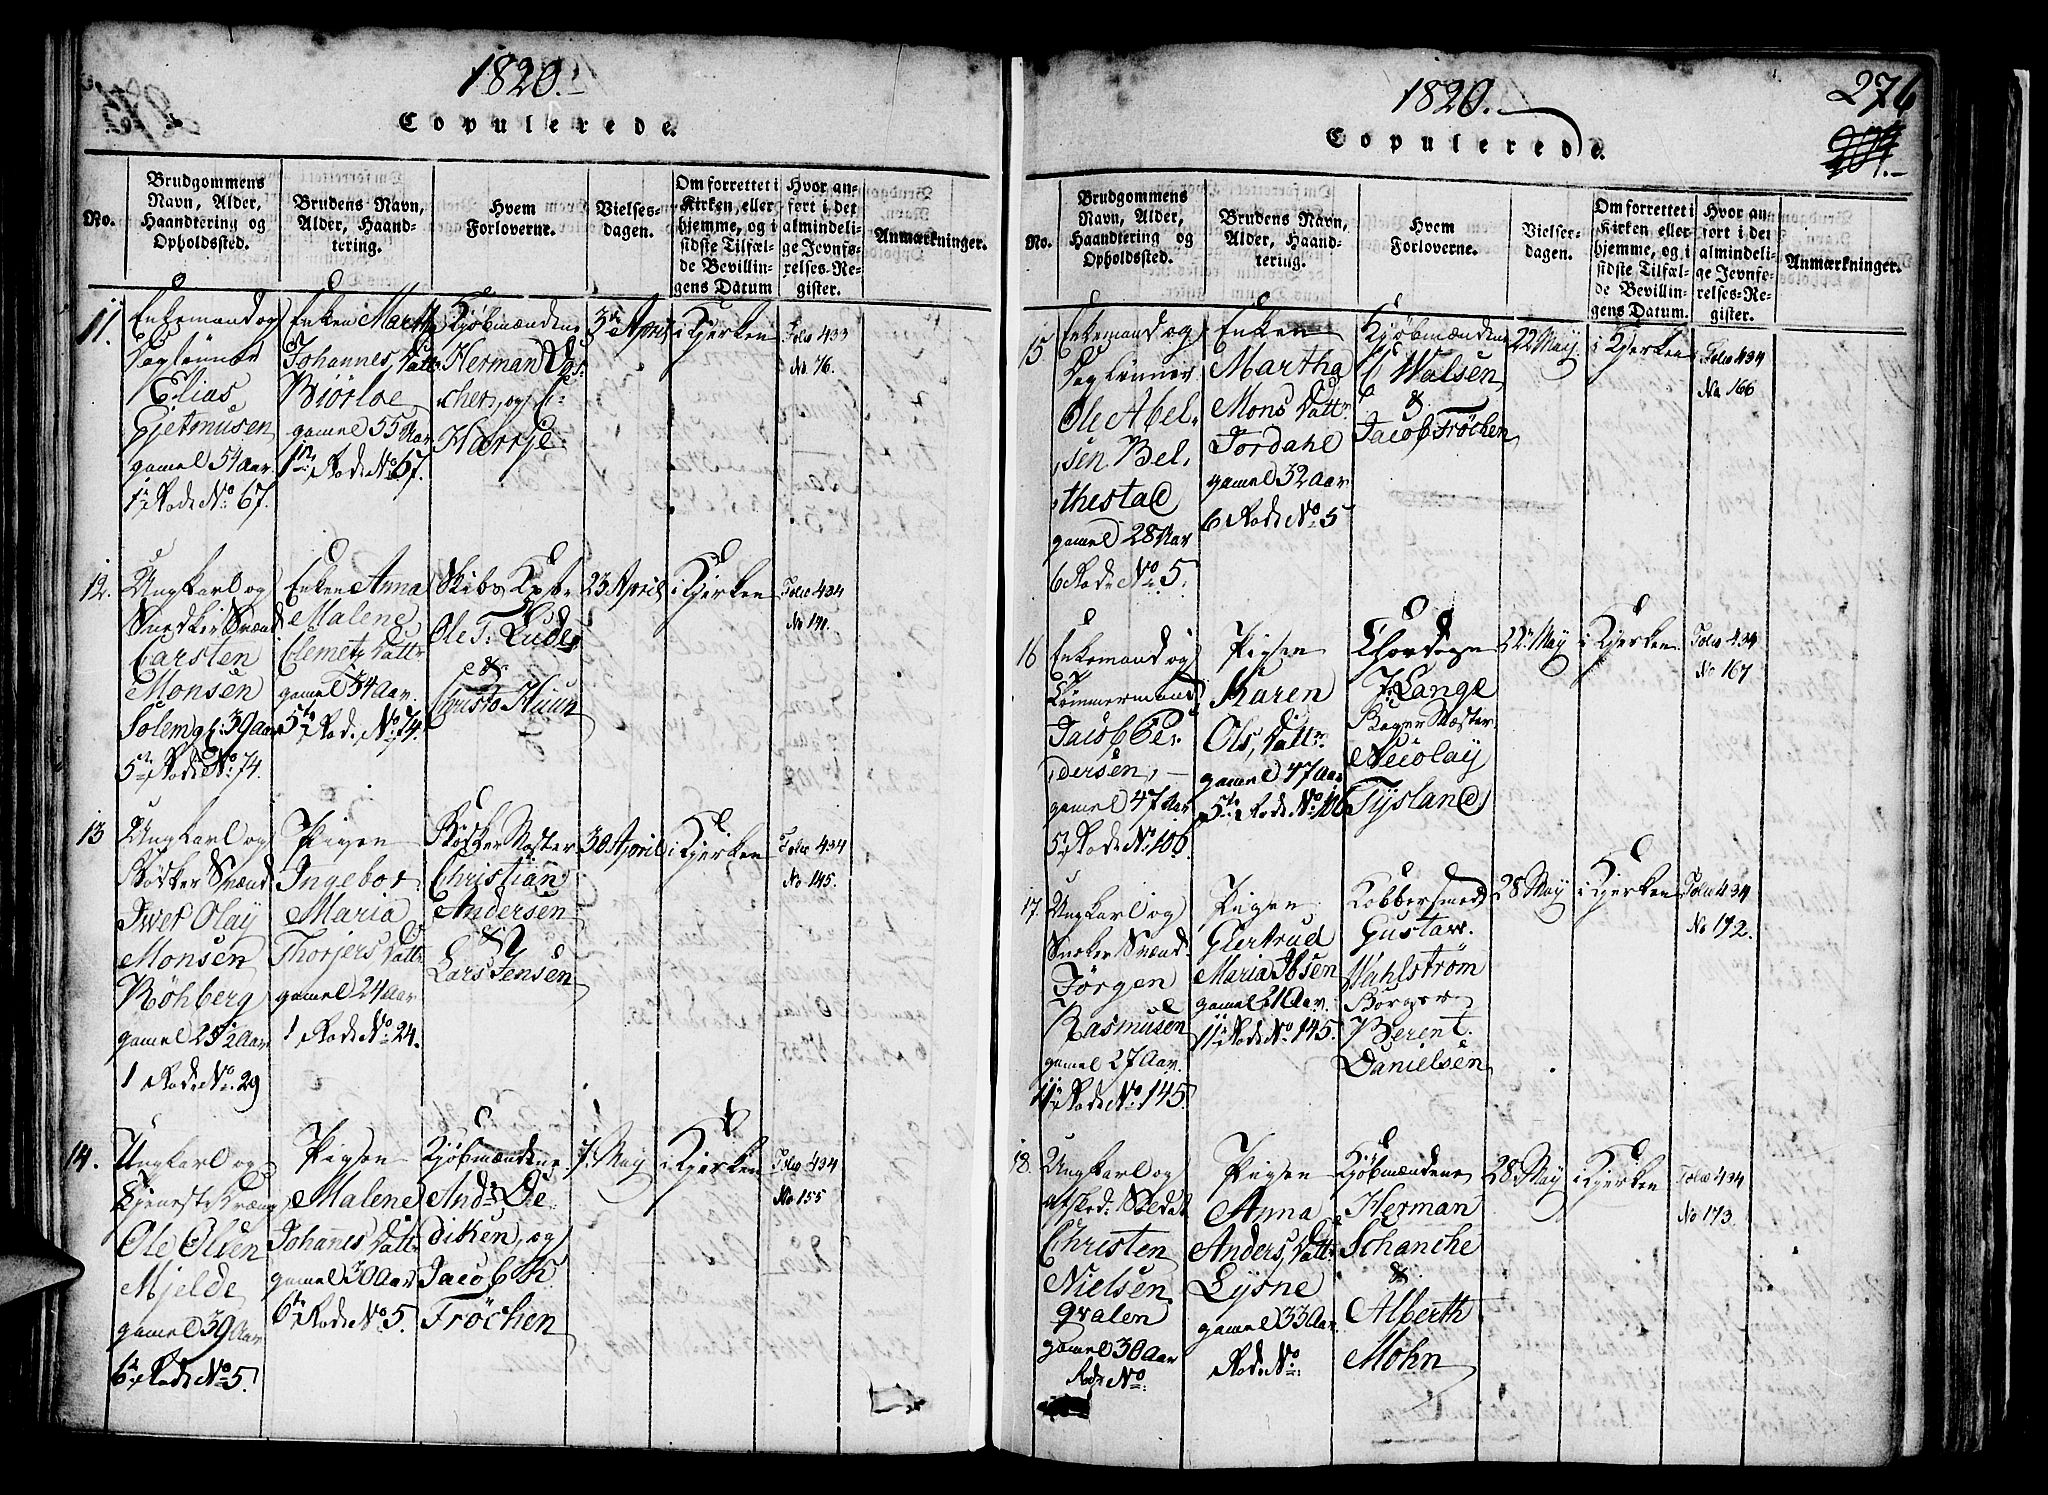 1820.
Copulerede.
No.
Brudgommens
Navn, Alder,
Haandtering og
Opholdssted.
Brudens Navn,
Alder, Haand-
tering.
Hvem
Forloverne.
Vielses-
dagen.
Om forrettet i
Kirken, eller
hjemme, og i
sidste Tilfæl-
de Bevillin-
gens Datum
Hvor an-
ført i det
almindeli-
ge Jevnfø-
relses-Re-
gister.
Anmærkninger.
11.
Enkemand og
Dagleiner
Elias
Gjetmusen
gamel 54 Aar
1te Rode No. 67.
Enken Marthe
Johannes Datr
Biörloe
gamel 55 Aar
1te Rode No 67.
Kjöbmændene
Herman Ros-
cher, og C:
Harrje.
3de April
i Kjerken
Folio 433
No. 76.
12.
Ungkarl og
Snedker Svend
Carsten
Monsen
Solem gl: 39 Aar
5te Rode No. 74.
Enken Anna
Malene
Clemetz Dattr
gamel 34 Aar
5te Rode No. 74.
Skibs Kpt.
Ole T: Luder
&
Christo Huun
23 April
i Kjerken
Folio 434
No 141.
13
Ungkarl og
Bödker Svend
Iver Olay
Monsen
Röhberg
gamel 25 1/2 Aar
1 Rode No. 29
Pigen
Ingebor
Maria
Thorjers Dattr
gamel 24 Aar
1 Rode No. 24.
Bödker Mester
Christian
Andersen
&
Lars Jensen
30 April
i Kjerken
Folio 434
No 145.
14.
Ungkarl og
Tjeneste Dreng
Ole Olsen
Mjelde
gamel 39 Aar
6te Rode No 5.
Pigen
Malene
Johanes Dattr
gamel 30 Aar
6te Rode No 5.
Kjöbmændene
Andr: De-
diken, og
Jacob K.
Tröchen
7. May
i Kjerken
Folio 434
No 155
1820.
276
Copulerede.
209.
No.
Brudgommens
Navn, Alder,
Haandtering og
Opholdssted.
Brudens Navn,
Alder, Haand-
tering.
Hvem
Forloverne.
Vielses-
dagen.
Om forrettet i
Kirken eller
hjemme, og i
sidste Tilfæl-
de Bevillin-
gens Datum.
Hvor an-
ført i det
almindeli-
ge Jevnfø-
relses-Re-
gister.
Anmærkninger.
15
Enkemand og
Dagleinner
Ole Abel-
sen Bel-
thestad
gamel 28 Aar
6 Rode No 5.
Enken
Martha
Mons Dattr
Jordahl
gamel 32 Aar
6 Rode No. 5
Kjöbmændene
C Walsen
&
Jacob Tröchen
22 May.
i Kjerken
Folio 434
No 166
16
Enkemand og
Tömmermand
Jacob Pe-
dersen,
gamel 47 Aar
5te Rode No. 106.
Pigen
Karen
Ols Dattr.
gamel 47 Aar
5te Rode No 106
J: Lange
Bager Mester
Nicolay
Tijsland
22 May
i Kjerken
Folio 434
No 167
17.
Ungkarl og
Snecker Svend
Jörgen
Rasmusen
gamel 27 Aar.
11te Rode No. 145.
Pigen
Giertrud
Maria Ibsen
gamel 21 Aar.
11te Rode No 145.
Kobbersmed
Gustav.
Wahlström
Borger
Berent.
Danielsen
28 May
i Kjerken
Folio 434
No 172.
18.
Ungkarl og
afsked: Soldat
Christen
Nielsen
Qvalen
gamel 30 Aar
Rode No:
Pigen
Anna
Anders Dattr
Lÿsne
gamel 33 Aar.
Rode No:
Kjöbmændene
Herman
Schanche
&
Alberth
Mohn
28 May
i Kjerken
Folio 434
No 173.